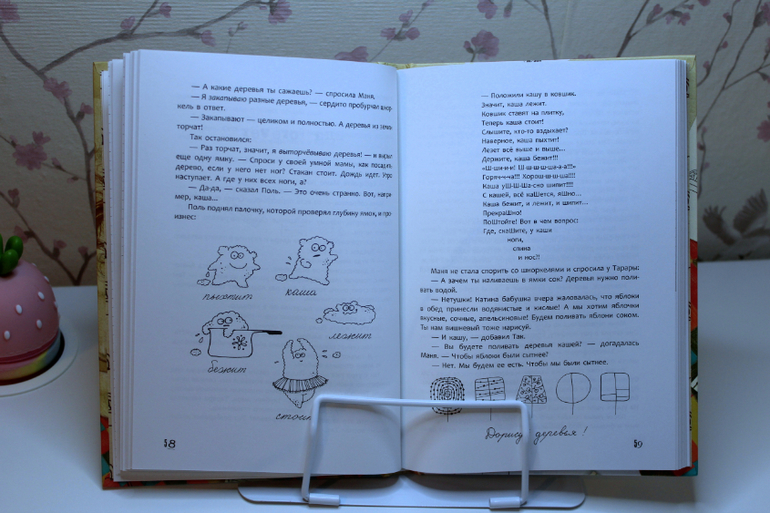 — А какие деревья ты сажаешь? — спросила Маня.
— Я закапываю разные деревья, — сердито пробурчал
кель в ответ.
— Закапывают — целиком и полностью. А деревья из земли
торчат!
Так остановился:
— Раз торчат, значит, я выторчёвываю деревья! — и вырыл
еще одну ямку. — Спроси у своей умной мамы, как посадить
дерево, если у него нет ног? Стакан стоит. Дождь идет. Утро
наступает. А где у них всех ноги, а?
— Да-да, — сказал Поль. — Это очень странно. Вот, напри-
мер, каша...
Поль поднял палочку, которой проверял глубину ямок, и про-
изнес:
пыхтит
каша
лежит
бежит
стоит
58
— Положили кашу в ковшик,
Значит, каша лежит.
Ковшик ставят на плитку,
Теперь каша стоит!
Слышите, кто-то вздыхает?
Наверное, каша пыхтит!
Лезет всё выше и выше...
Держите, каша бежит!!!
«Ш-ш-ш-ш! Ш-ш-ш-ш-ш-а-а!!!»
Горяч-ч-ча!!! Хорош-ш-ш-ша!!!
Каша уШ-Ш-Ша-сно шипит!!!!
С кашей, всё каШется, яШно...
Каша бежит, и лежит, и шипит...
ПрекраШно!
ПоШтойте! Вот в чем вопрос:
Где, скаШите, у каши
ноги,
спина
и нос!!
Маня не стала спорить со шкоркелями и спросила у Тарары:
— А зачем ты наливаешь в ямки сок? Деревья нужно поли-
вать водой.
— Нетушки! Катина бабушка вчера жаловалась, что яблоки
в обед принесли водянистые и кислые! А мы хотим яблочки
вкусные, сочные, апельсиновые! Будем поливать яблони соком.
Ты нам вишневый тоже нарисуй.
— И кашу, — добавил Так.
— Вы будете поливать деревья кашей? — догадалась
Маня. — Чтобы яблоки были сытнее?
— Нет. Мы будем ее есть. Чтобы мы были сытнее.
Дорисуй деревья!
59